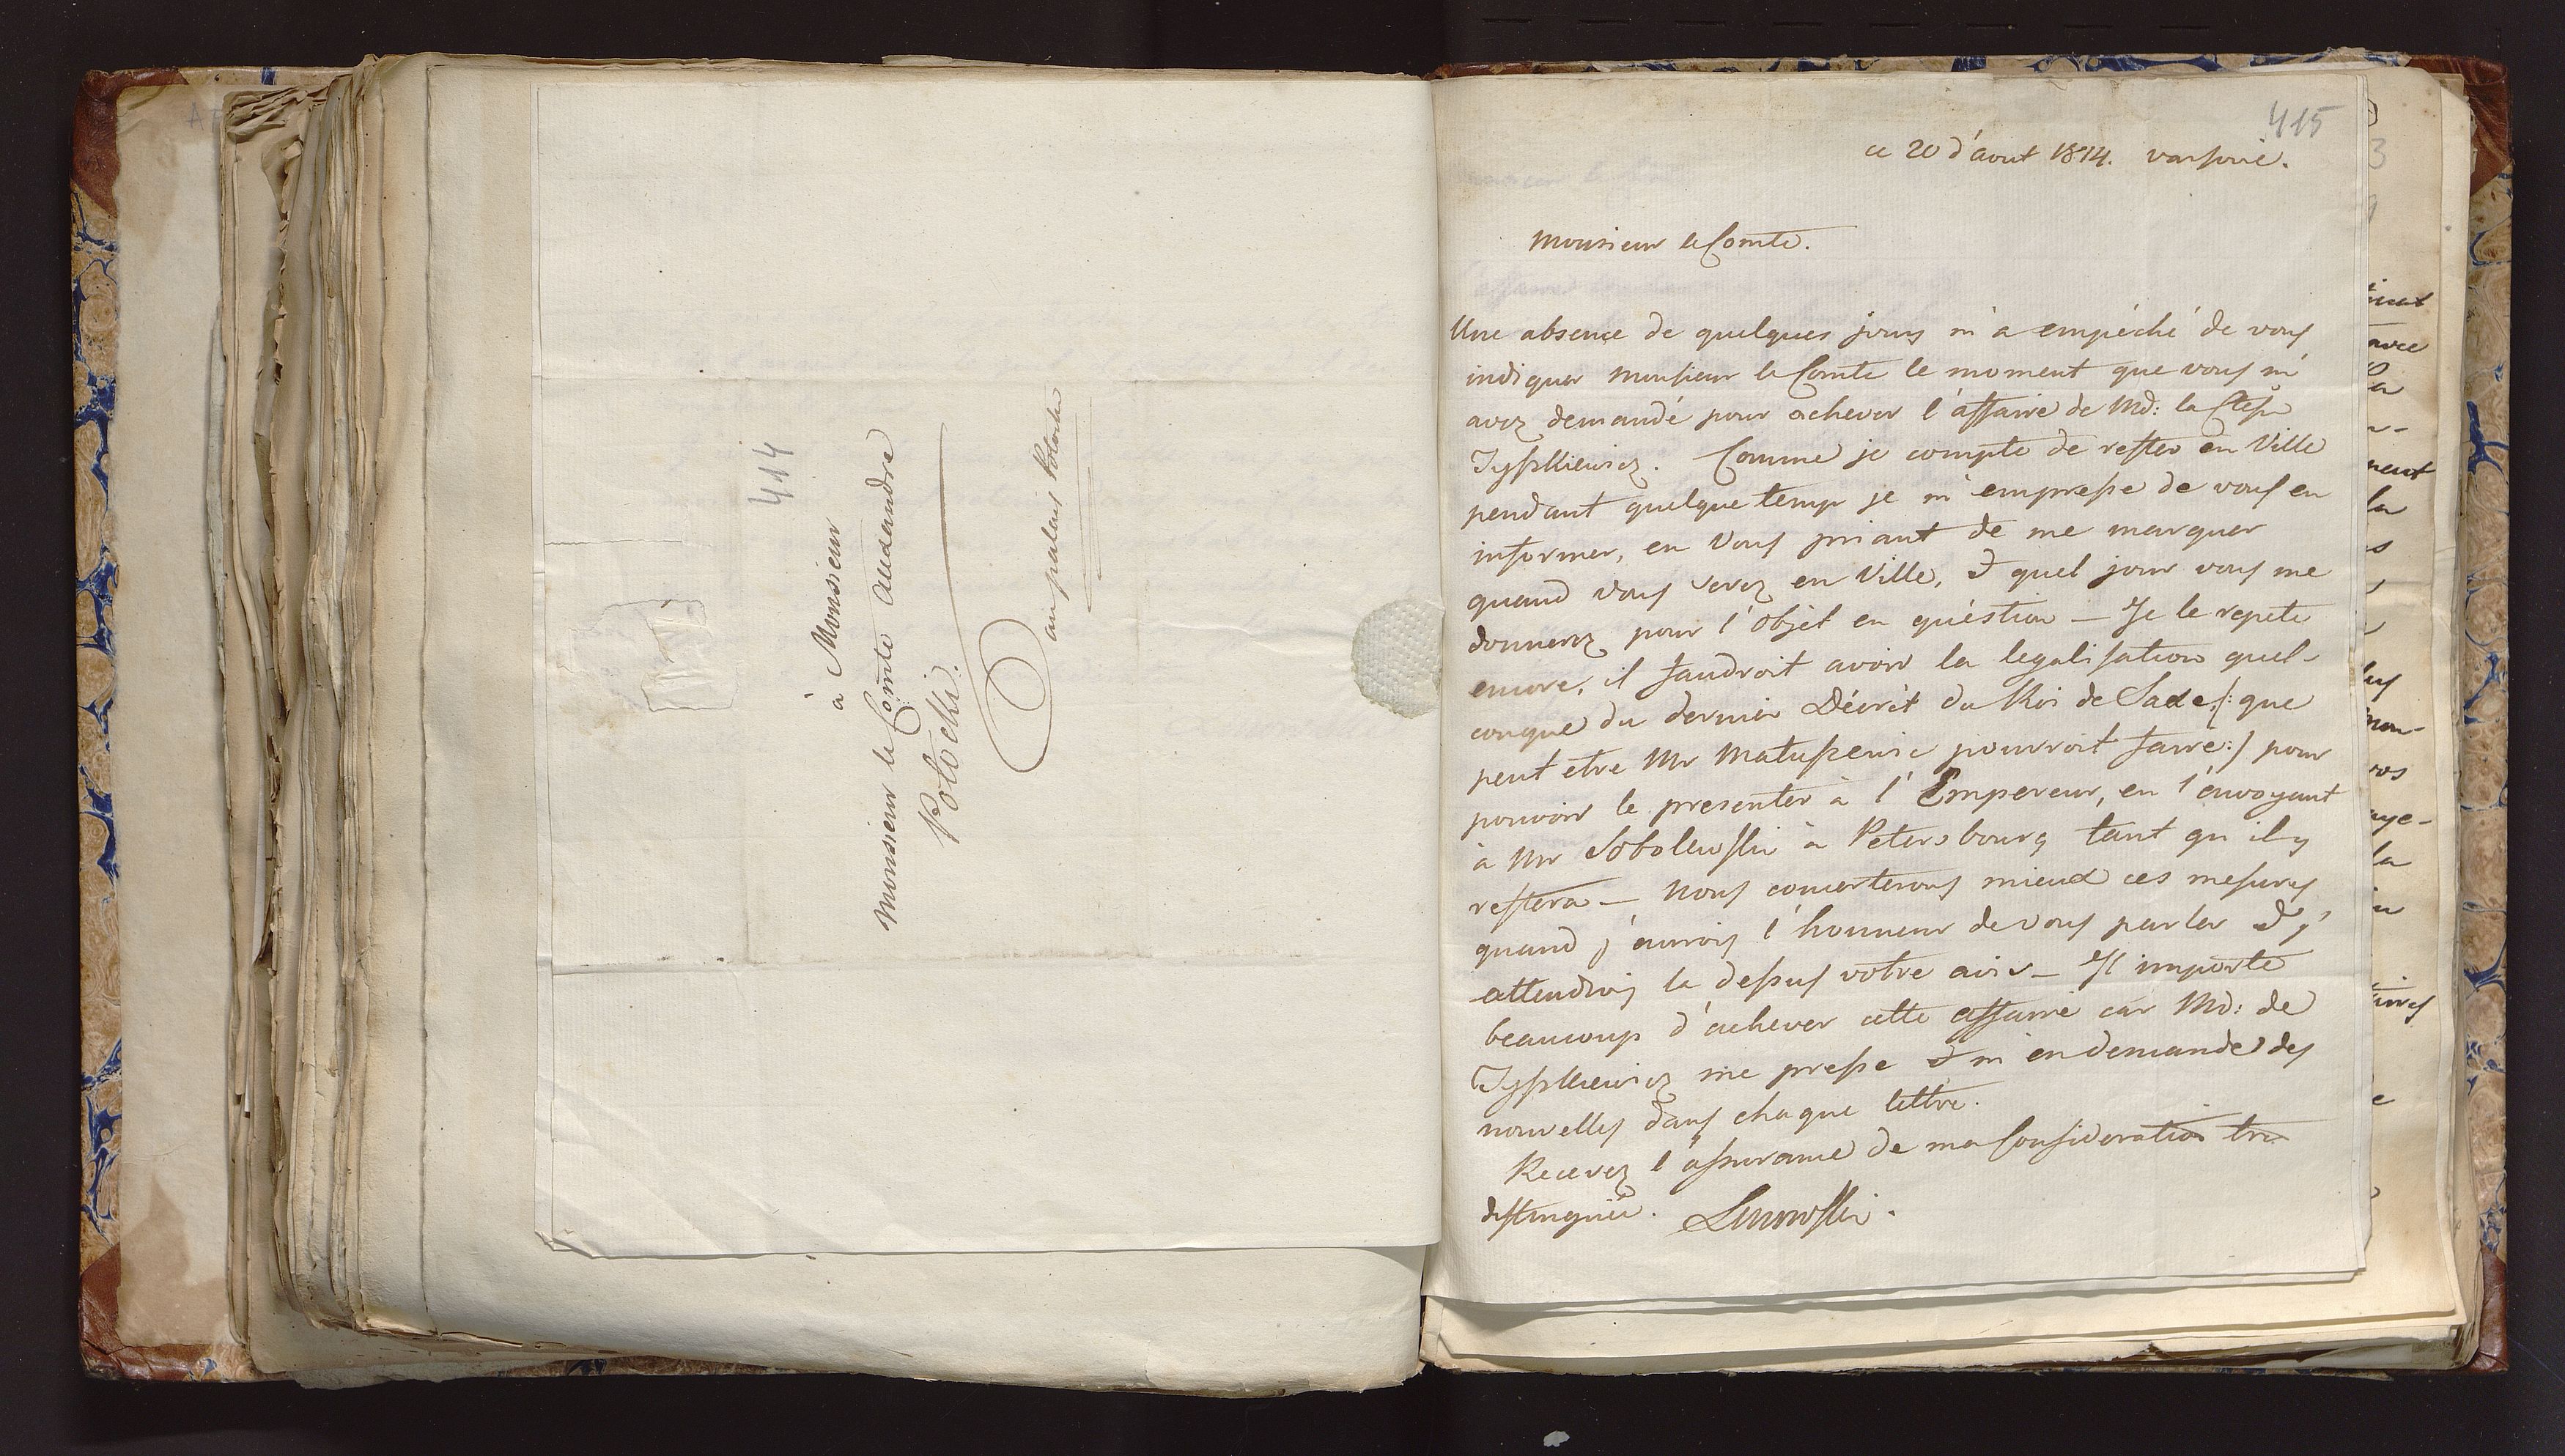 414
à Monsieur
Monsieur le Comte Alexandre
Potocki.
au palais Potocki
415
ce 20 d'aout 1814. varsovie.
Monsieur le Comte.
Une absence de quelques jours m'a empéché de vous
indiquer Monsieur le Comte le moment que vous m'
avez demandé pour achever l'affaire de Md: la Ctesse
Tyszkiewicz. Comme je compte de rester en Ville
pendant quelque temps je m'empresse de vous en
informer, en Vous priant de me marquer
quand vous serez en Ville, & quel jour vous me
donnerez pour l'objet en quéstion — Je le repete
encore, il faudroit avoir la legalisation quel-
conque du dernier Décrèt du Roi de Saxe, /: que
peut etre Mr Matuszewic pourroit faire :/ pour
pouvoir le presenter à l'Empereur, en l'envoyant
à Mr Sobolewski à Petersbourg tant qu'il y
restera — Nous concerterons mieux ces mesures
quand j'aurois l'honneur de vous parler & j'
attendrois la dessus votre avis — Il importe
beaucoup d'achever cette affaire car Md: de
Tyszkiewicz me presse & m'en demande des
nouvelles dans chaque lettre.
Recevez l'assurance de ma Consideration tres
distinguée.